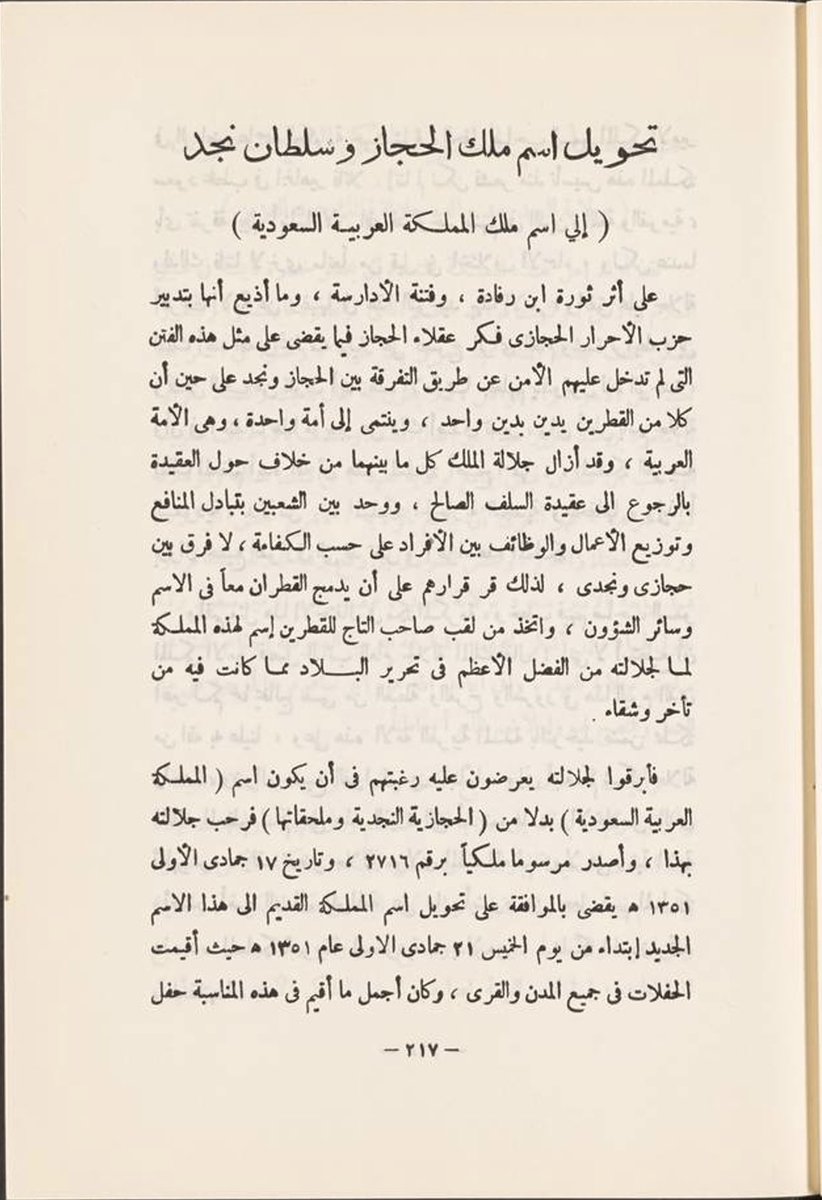 تحويل اسم ملك الحجاز وسلطان نجد
( إلي اسم ملك المملكة العربية السعودية )
على أثر ثورة ابن رفادة ، وفتنة الأدارسة ، وما أذيع أنها بتدبير
حزب الأحرار الحجازى فكر عقلاء الحجاز فيما يقضى على مثل هذه الفتن
التى لم تدخل عليهم الأمن عن طريق التفرقة بين الحجاز ونجد على حين أن
كلا من القطرين يدين بدين واحد ، وينتمى إلى أمة واحدة ، وهى الأمة
العربية ، وقد أزال جلالة الملك كل ما بينهما من خلاف حول العقيدة
بالرجوع الى عقيدة السلف الصالح ، ووحد بين الشعبين بتبادل المنافع
وتوزيع الأعمال والوظائف بين الأفراد على حسب الكفاءة ، لا فرق بين
حجازى ونجدى ، لذلك قر قرارهم على أن يدمج القطران معاً فى الاسم
وسائر الشؤون ، واتخذ من لقب صاحب التاج للقطرين إسم لهذه المملكة
لما لجلالته من الفضل الأعظم فى تحرير البلاد مما كانت فيه من
تأخر وشقاء .
فأبرقوا لجلالته يعرضون عليه رغبتهم فى أن يكون اسم ( المملكة
العربية السعودية ) بدلا من ( الحجازية النجدية وملحقاتها ) فرحب جلالته
بهذا ، وأصدر مرسوما ملكياً برقم ٢٧١٦ ، وتاريخ ١٧ جمادى الأولى
١٣٥١ ه يقضى بالموافقة على تحويل اسم المملكة القديم الى هذا الاسم
الجديد إبتداء من يوم الخميس ٢١ جمادى الاولى عام ١٣٥١ ه حيث أقيمت
الحفلات فى جميع المدن والقرى ، وكان أجمل ما أقيم فى هذه المناسبة حفل
— ٢١٧ —